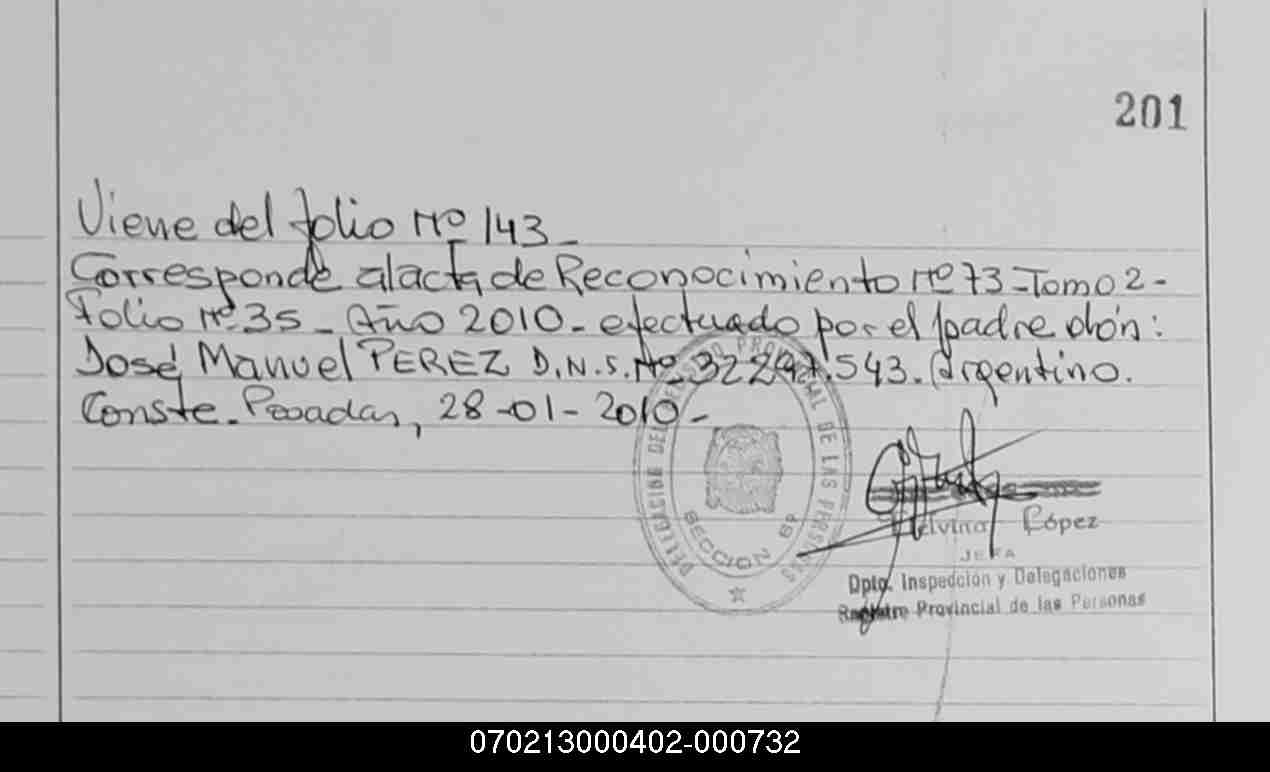 201
Viene del folio Nº 143_
Corresponde al acta de Reconocimiento Nº 73-Tomo 2-
Folio Nº 35_ Año 2010_ efectuado por el padre don:
José Manuel PEREZ D.N.I. Nº 32297.543. Argentino.
Conste. Posadas, 28-01-2010_
DELEGACION DEL REGISTRO PROVINCIAL DE LAS PERSONAS
SECCION 6ª
López
JEFA
Dpto. Inspección y Delegaciones
Registro Provincial de las Personas
070213000402-000732